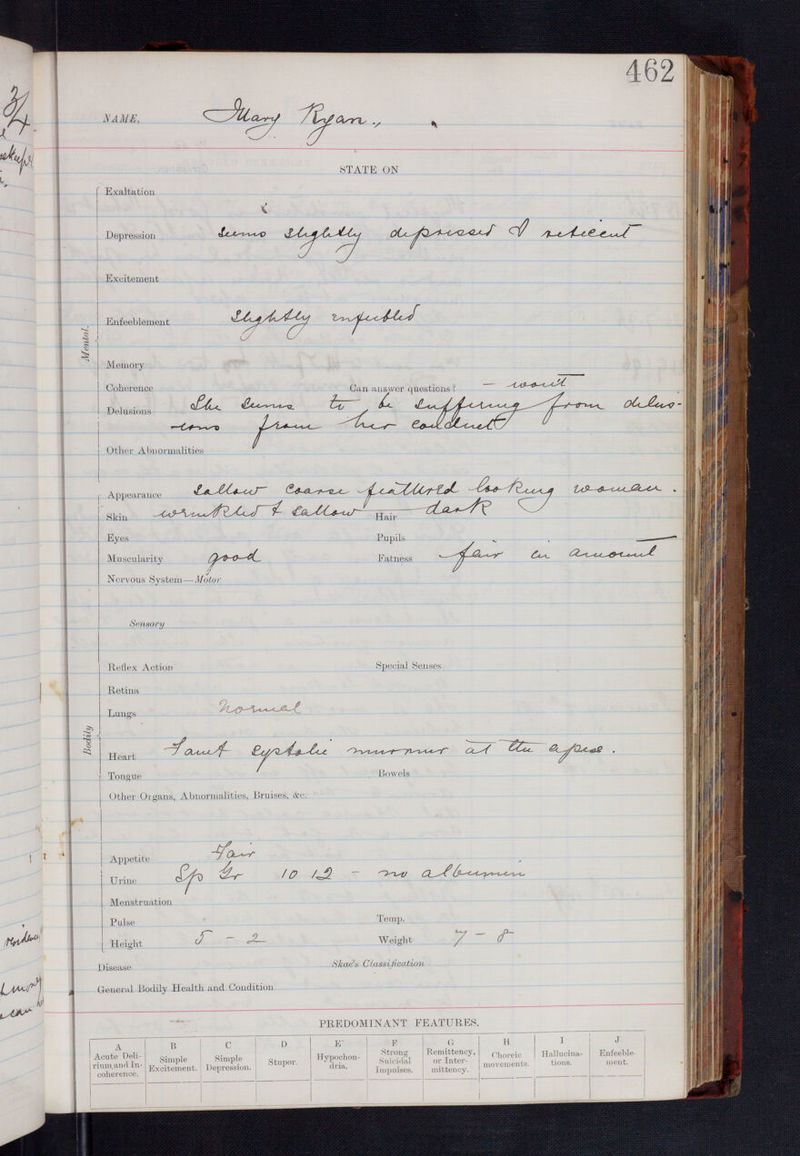 462
NAME. Mary Ryan.,
STATE ON
Mental.
Exaltation
Depression seems slightly depressed & reticent
Excitement
Enfeeblement slightly enfeebled
Memory
Coherence Can answer questions? — won't
Delusions She seems to be suffering from delus-
-ions from her conduct
Other Abnormalities
Bodily
Appearance sallow coarse featured looking woman.
Skin wrinkled & sallow Hair dark
Eyes Pupils
Muscularity good Fatness fair in amount
Nervous System—Motor
Sensory
Reflex Action Special Senses
Retina
Lungs normal
Heart Faint systolic murmur at the apex.
Tongue Bowels
Other Organs, Abnormalities, Bruises, &c.
Appetite Fair
Urine Sp Gr 10 12 - no albumin
Menstruation
Pulse Temp.
Height 5 - 2 Weight 7 - 8
Disease Skae's Classification
General Bodily Health and Condition
PREDOMINANT FEATURES.
A B C D E F G H I J
Acute Delirium, and Incoherence. Simple Excitement. Simple Depression. Stupor. Hypochondria. Strong Suicidal Impulses. Remittency, or Intermittency. Choreic movements. Hallucinations. Enfeeblement.